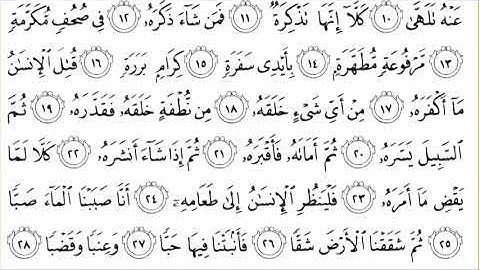 عَنْهُ تَلَهَّىٰ ١٠ كَلَّا إِنَّهَا تَذْكِرَةٌ ١١ فَمَن شَاءَ ذَكَرَهُ ١٢ فِي صُحُفٍ مُّكَرَّمَةٍ
١٣ مَّرْفُوعَةٍ مُّطَهَّرَةٍ ١٤ بِأَيْدِي سَفَرَةٍ ١٥ كِرَامٍ بَرَرَةٍ ١٦ قُتِلَ الْإِنسَانُ
مَا أَكْفَرَهُ ١٧ مِنْ أَيِّ شَيْءٍ خَلَقَهُ ١٨ مِن نُّطْفَةٍ خَلَقَهُ فَقَدَّرَهُ ١٩ ثُمَّ
السَّبِيلَ يَسَّرَهُ ٢٠ ثُمَّ أَمَاتَهُ فَأَقْبَرَهُ ٢١ ثُمَّ إِذَا شَاءَ أَنشَرَهُ ٢٢ كَلَّا لَمَّا
يَقْضِ مَا أَمَرَهُ ٢٣ فَلْيَنظُرِ الْإِنسَانُ إِلَىٰ طَعَامِهِ ٢٤ أَنَّا صَبَبْنَا الْمَاءَ صَبًّا
٢٥ ثُمَّ شَقَقْنَا الْأَرْضَ شَقًّا ٢٦ فَأَنبَتْنَا فِيهَا حَبًّا ٢٧ وَعِنَبًا وَقَضْبًا ٢٨